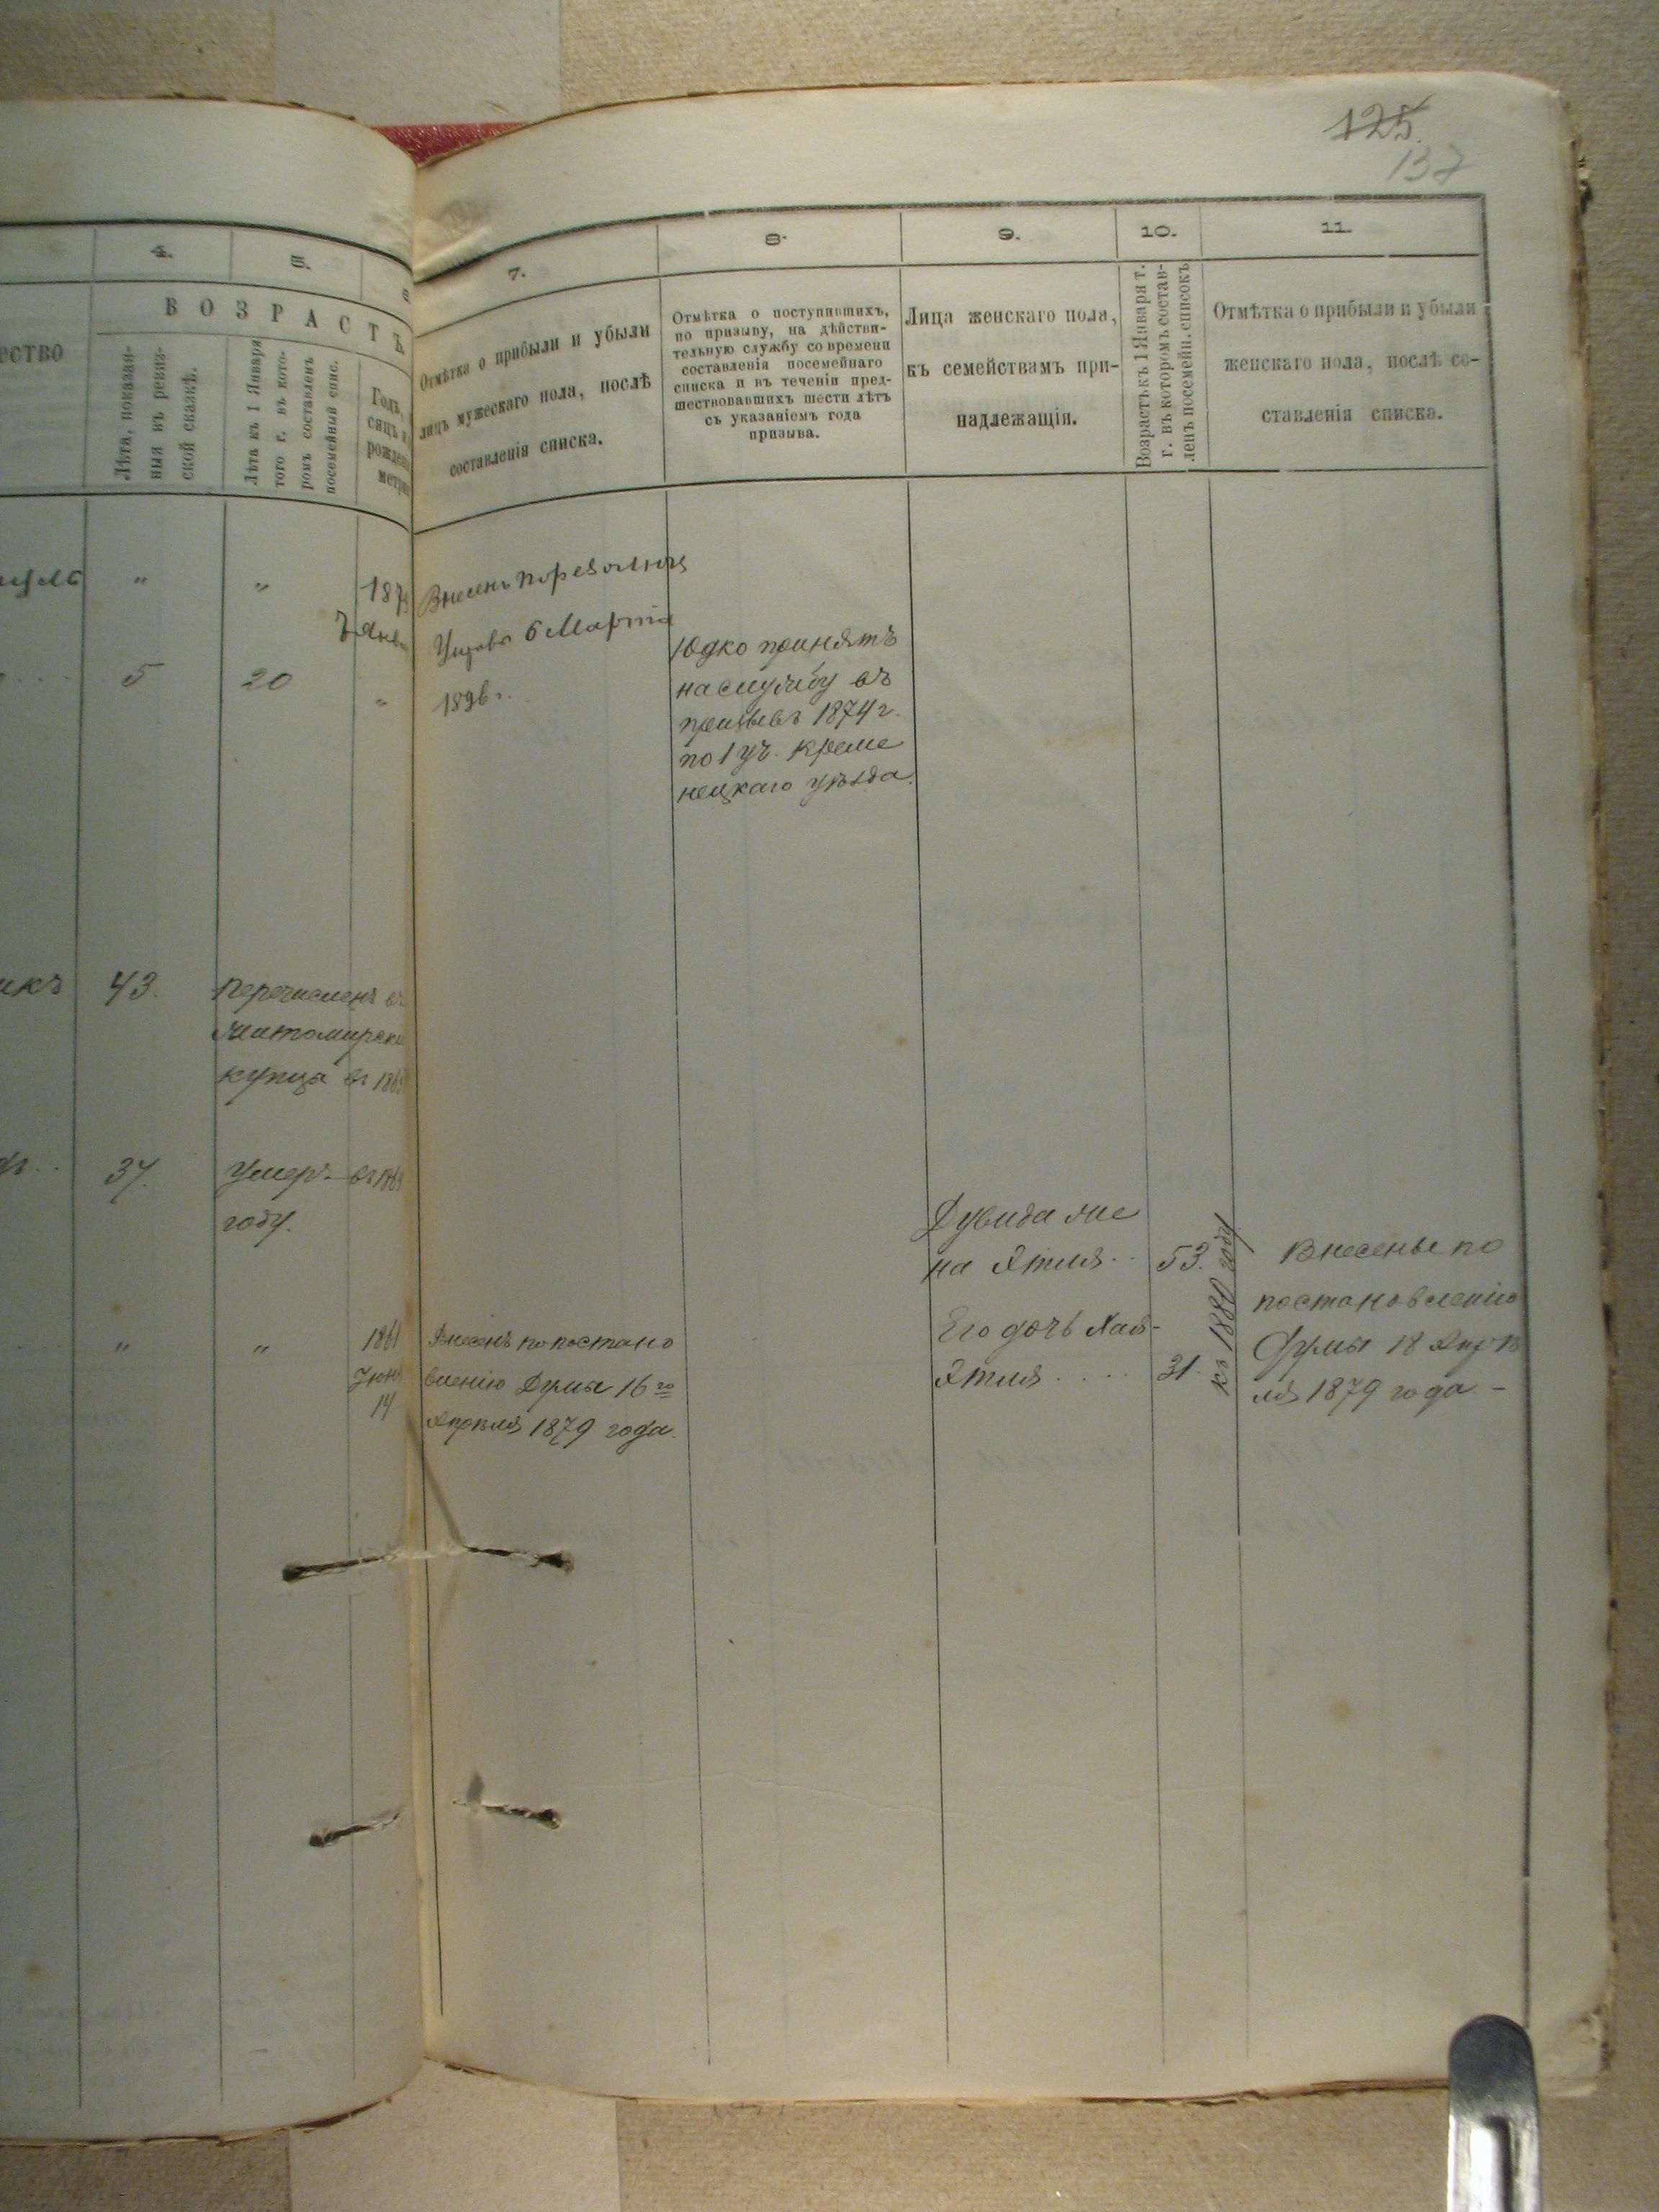 125.
137
4.
5.
6
7.
8.
9.
10.
11.
ВОЗРАСТЪ
Лѣта, показан-
ныя въ ревиз-
ской сказкѣ.
Лѣта къ 1 Января
того г. въ кото-
ромъ составленъ
посемейный спис.
Годъ,
рожден
метри
Отмѣтка о прибыли и убыли
лицъ мужескаго пола, послѣ
составленія списка.
Отмѣтка о поступившихъ,
по призыву, на дѣйстви-
тельную службу со времени
составленія посемейнаго
списка и въ теченіи пред-
шествовавшихъ шести лѣтъ
съ указаніемъ года
призыва.
Лица женскаго пола,
къ семействамъ при-
надлежащія.
Возрастъ къ 1 Января т.
г. въ которомъ состав-
ленъ посемейн. списокъ
Отмѣтка о прибыли и убыли
женскаго пола, послѣ со-
ставленія списка.
" "
Внесенъ по резолюц
6 Марта
1896 г.
5 20 "
Юдко принятъ
на службу въ
призывъ 1874 г.
по 1 уч. Креме
нецкаго уѣзда.
43. Перечисленъ въ
Житомирск
купца въ
37. Умеръ въ
году.
Дувида же
на Этля .. 53.
Его дочь Хая-
Этля .... 31.
къ 1880 году
Внесены по
постановленію
Думы 18 Апрѣ
ля 1879 года -
" " 1861
Іюня
14
Внесенъ по постано
вленію Думы 16го
Апрѣля 1879 года.